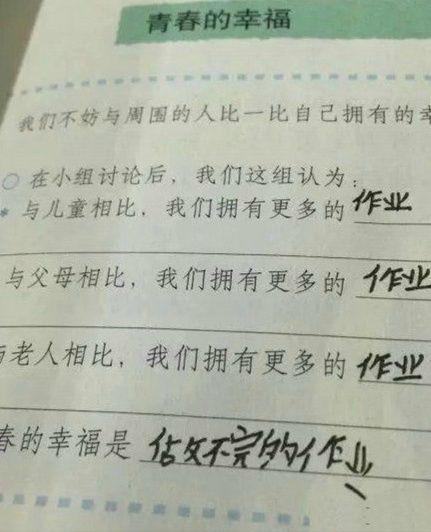 青春的幸福
我们不妨与周围的人比一比自己拥有的幸
○ 在小组讨论后，我们这组认为：
* 与儿童相比，我们拥有更多的 作业
与父母相比，我们拥有更多的 作业
与老人相比，我们拥有更多的 作业
春的幸福是 做不完的作业